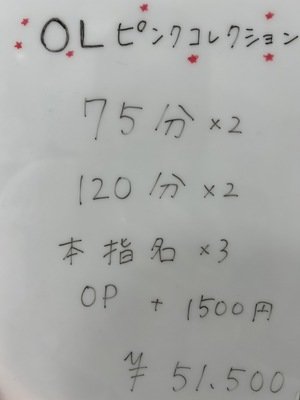 OLピンクコレクション
75分×2
120分×2
本指名×3
OP + 1500円
¥51.500